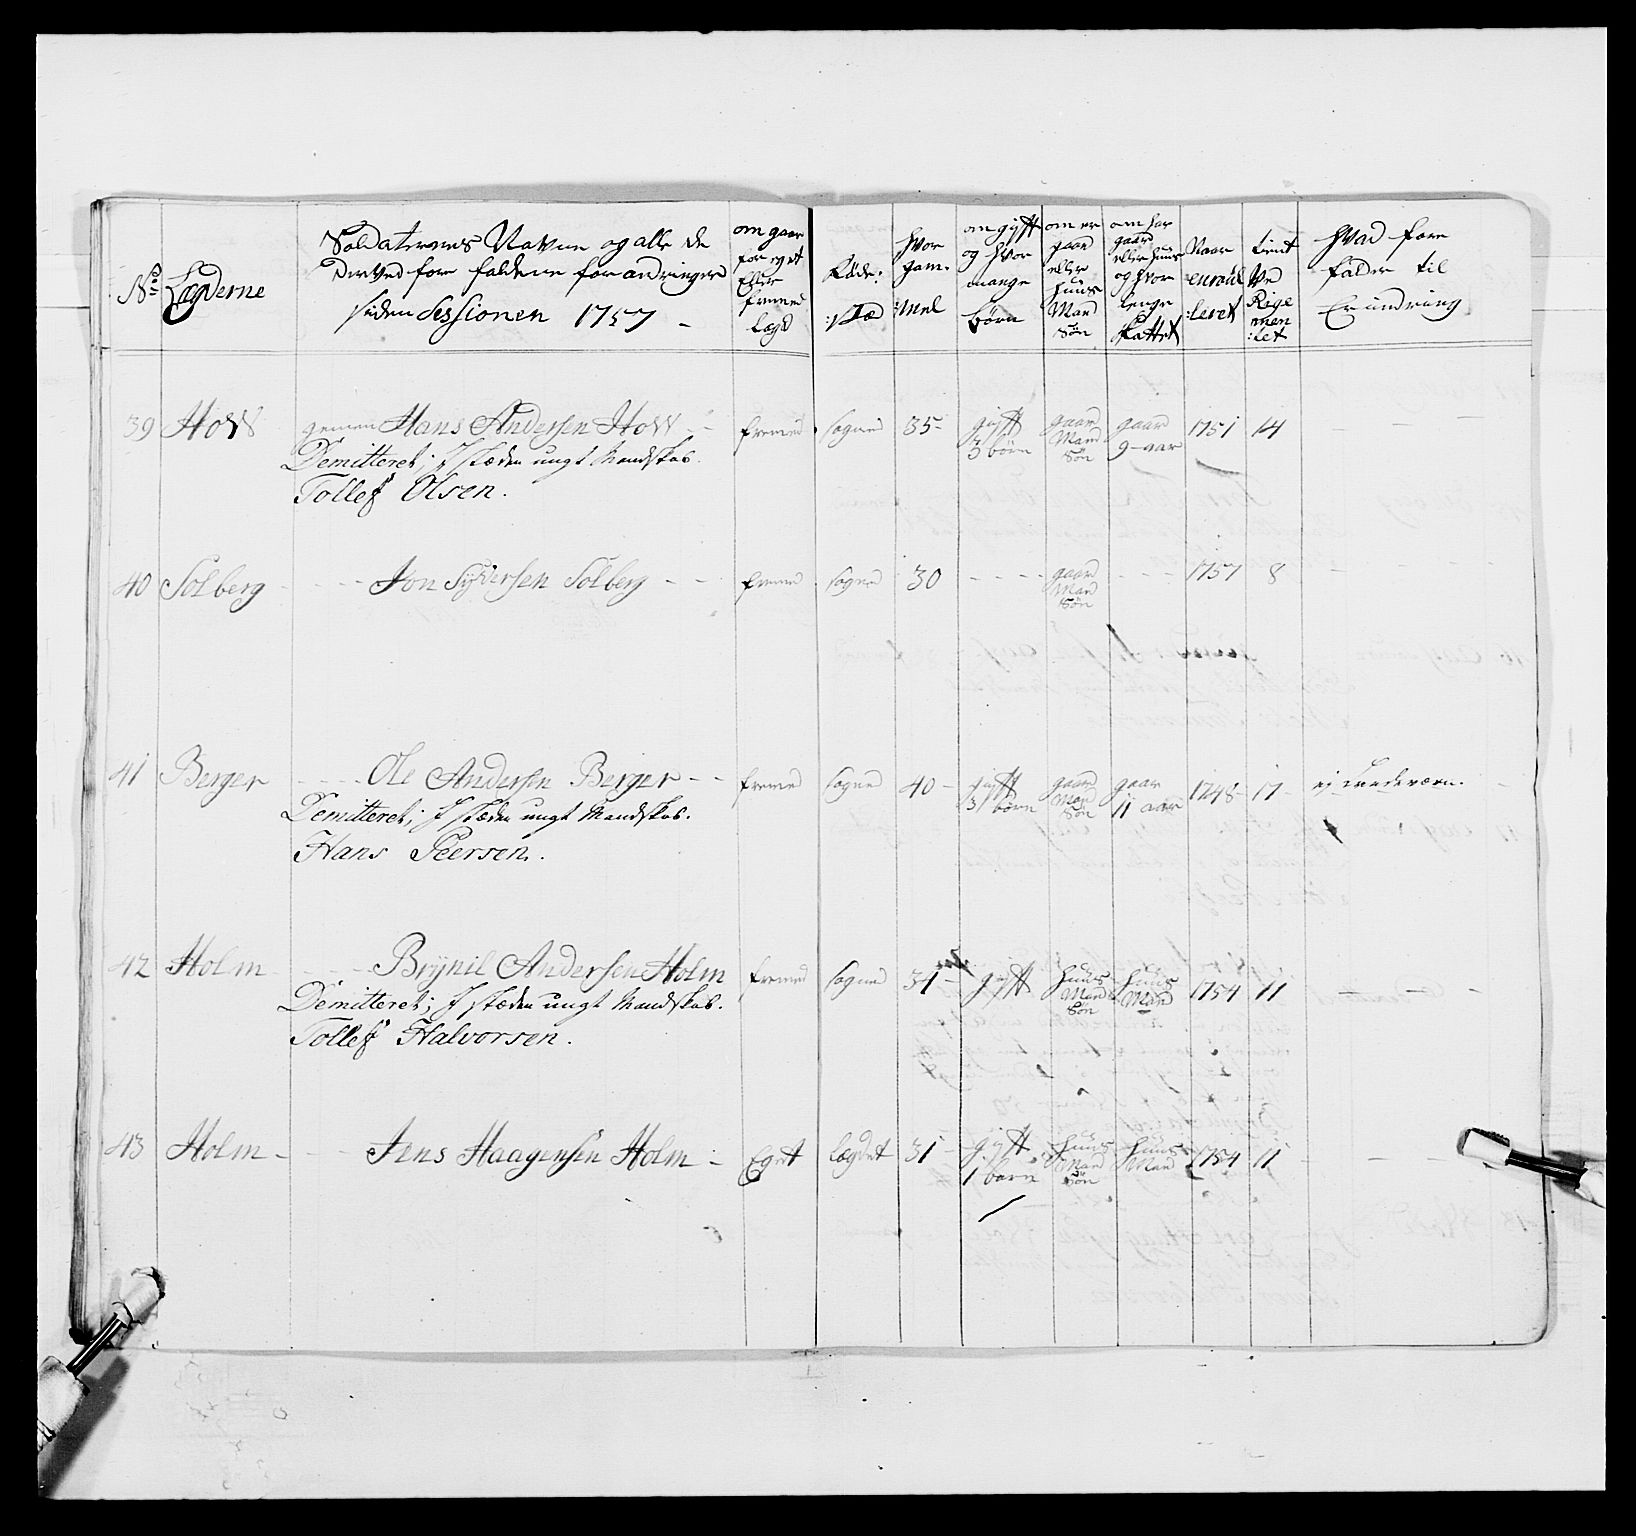 No Lægderne
Soldaternes Navne og alle de
derved fore faldene forandringer
siden Sessionen 1757 -
om gaar
for eget
Eller
fremed
Lægd
Føde:
:stæd
hvor
gam:
:mel
om gift
og hvor
mange
børn
om er
gaard
eller
huus
Mand
Søn
om har
gaard
eller huus
og hvor
lenge
Naar
enroul
:leret
tient
ved
Rige
men
:tet
hvad fore
falder til
Erindring
39 Hoff gemen Hans Andersen Hoff - - fremed Sogned 35 gift gaard gaard 1751 14 - -
3 børn Mand 9 aar
Søn
Demitteret; I stæden ungt Mandskab.
Tollef Olsen.
40 Solberg - - - - Jon Syversen Solberg - - fremed Sogned 30 - - - - gaard - - - 1757 8
Mand
Søn
41 Berger - - - - Ole Andersen Berger - - fremed Sogned 40 - gift gaard gaar 1748 - 17 - ej Landeværn. -
3 børn Mand 11 aar
Søn
Demitteret; I stæden ungt Mandskab.
Hans Peersen.
42 Holm - - - Brynil Andersen Holm fremed Sogned 31 - gift huus huus 1754 11 - - - -
Mand Mand
Søn
Demitteret; I stæden ungt Mandskab.
Tollef Halvorsen.
43 Holm - - - Jens Haagensen Holm - Eget Lægdet 31 - gift huus huus 1754 11 - - -
1 barn Mand Mand
Søn